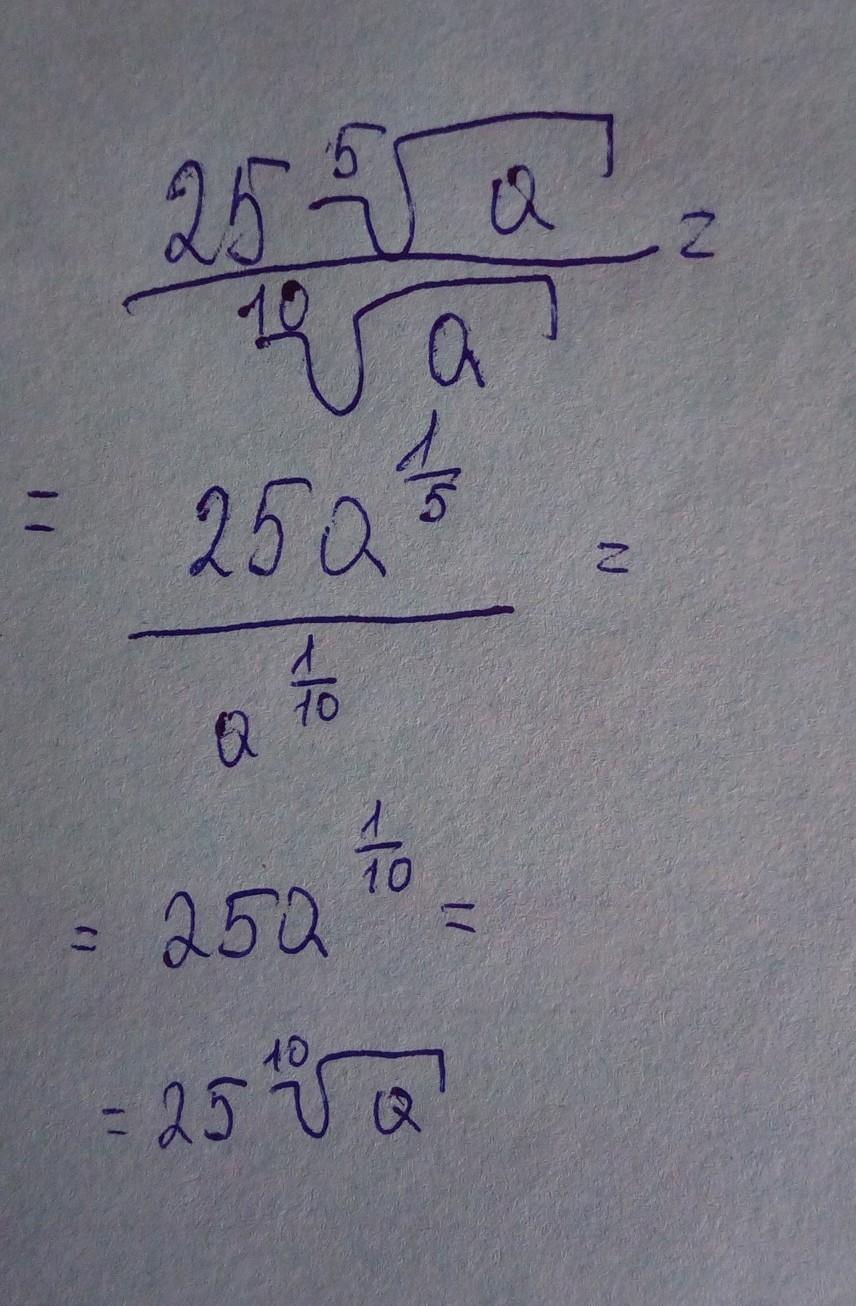 25 ⁵√a =
¹⁰√a
= 25a^(1/5) =
a^(1/10)
= 25a^(1/10) =
= 25 ¹⁰√a